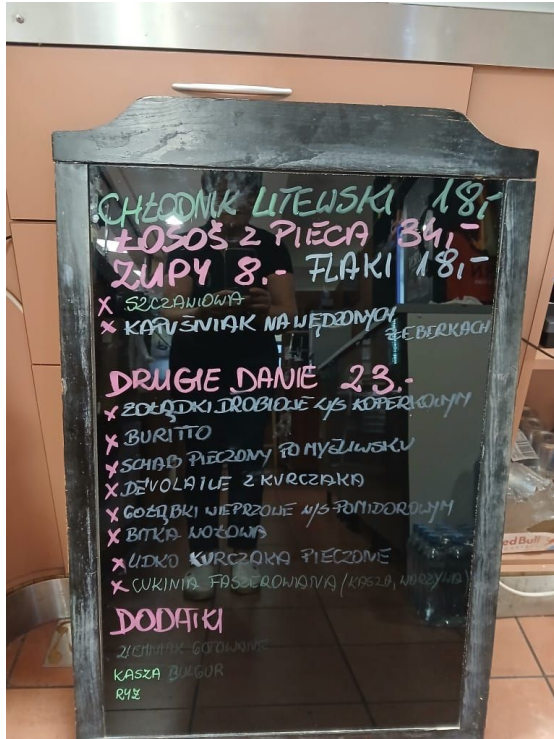 CHŁODNIK LITEWSKI 18,-
ŁOSOŚ Z PIECA 34,-
ZUPY 8.- FLAKI 18,-
X SZCZAWIOWA
X KAPUŚNIAK NA WĘDZONYCH
ŻEBERKACH
DRUGIE DANIE 23.-
X ŻOŁĄDKI DROBIOWE W/S KOPERKOWYM
X BURITTO
X SCHAB PIECZONY PO MYŚLIWSKU
X DE'VOLAILE Z KURCZAKA
X GOŁĄBKI WIEPRZOWE W/S POMIDOROWYM
X BITKA WOŁOWA
X UDKO KURCZAKA PIECZONE
X CUKINIA FASZEROWANA (KASZA, WARZYWA)
DODATKI
ZIEMNIAK GOTOWANE
KASZA BULGUR
RYŻ
Red Bull